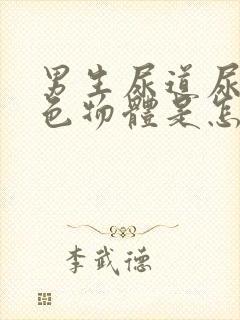 男生尿道尿
色物體是怎
李武德